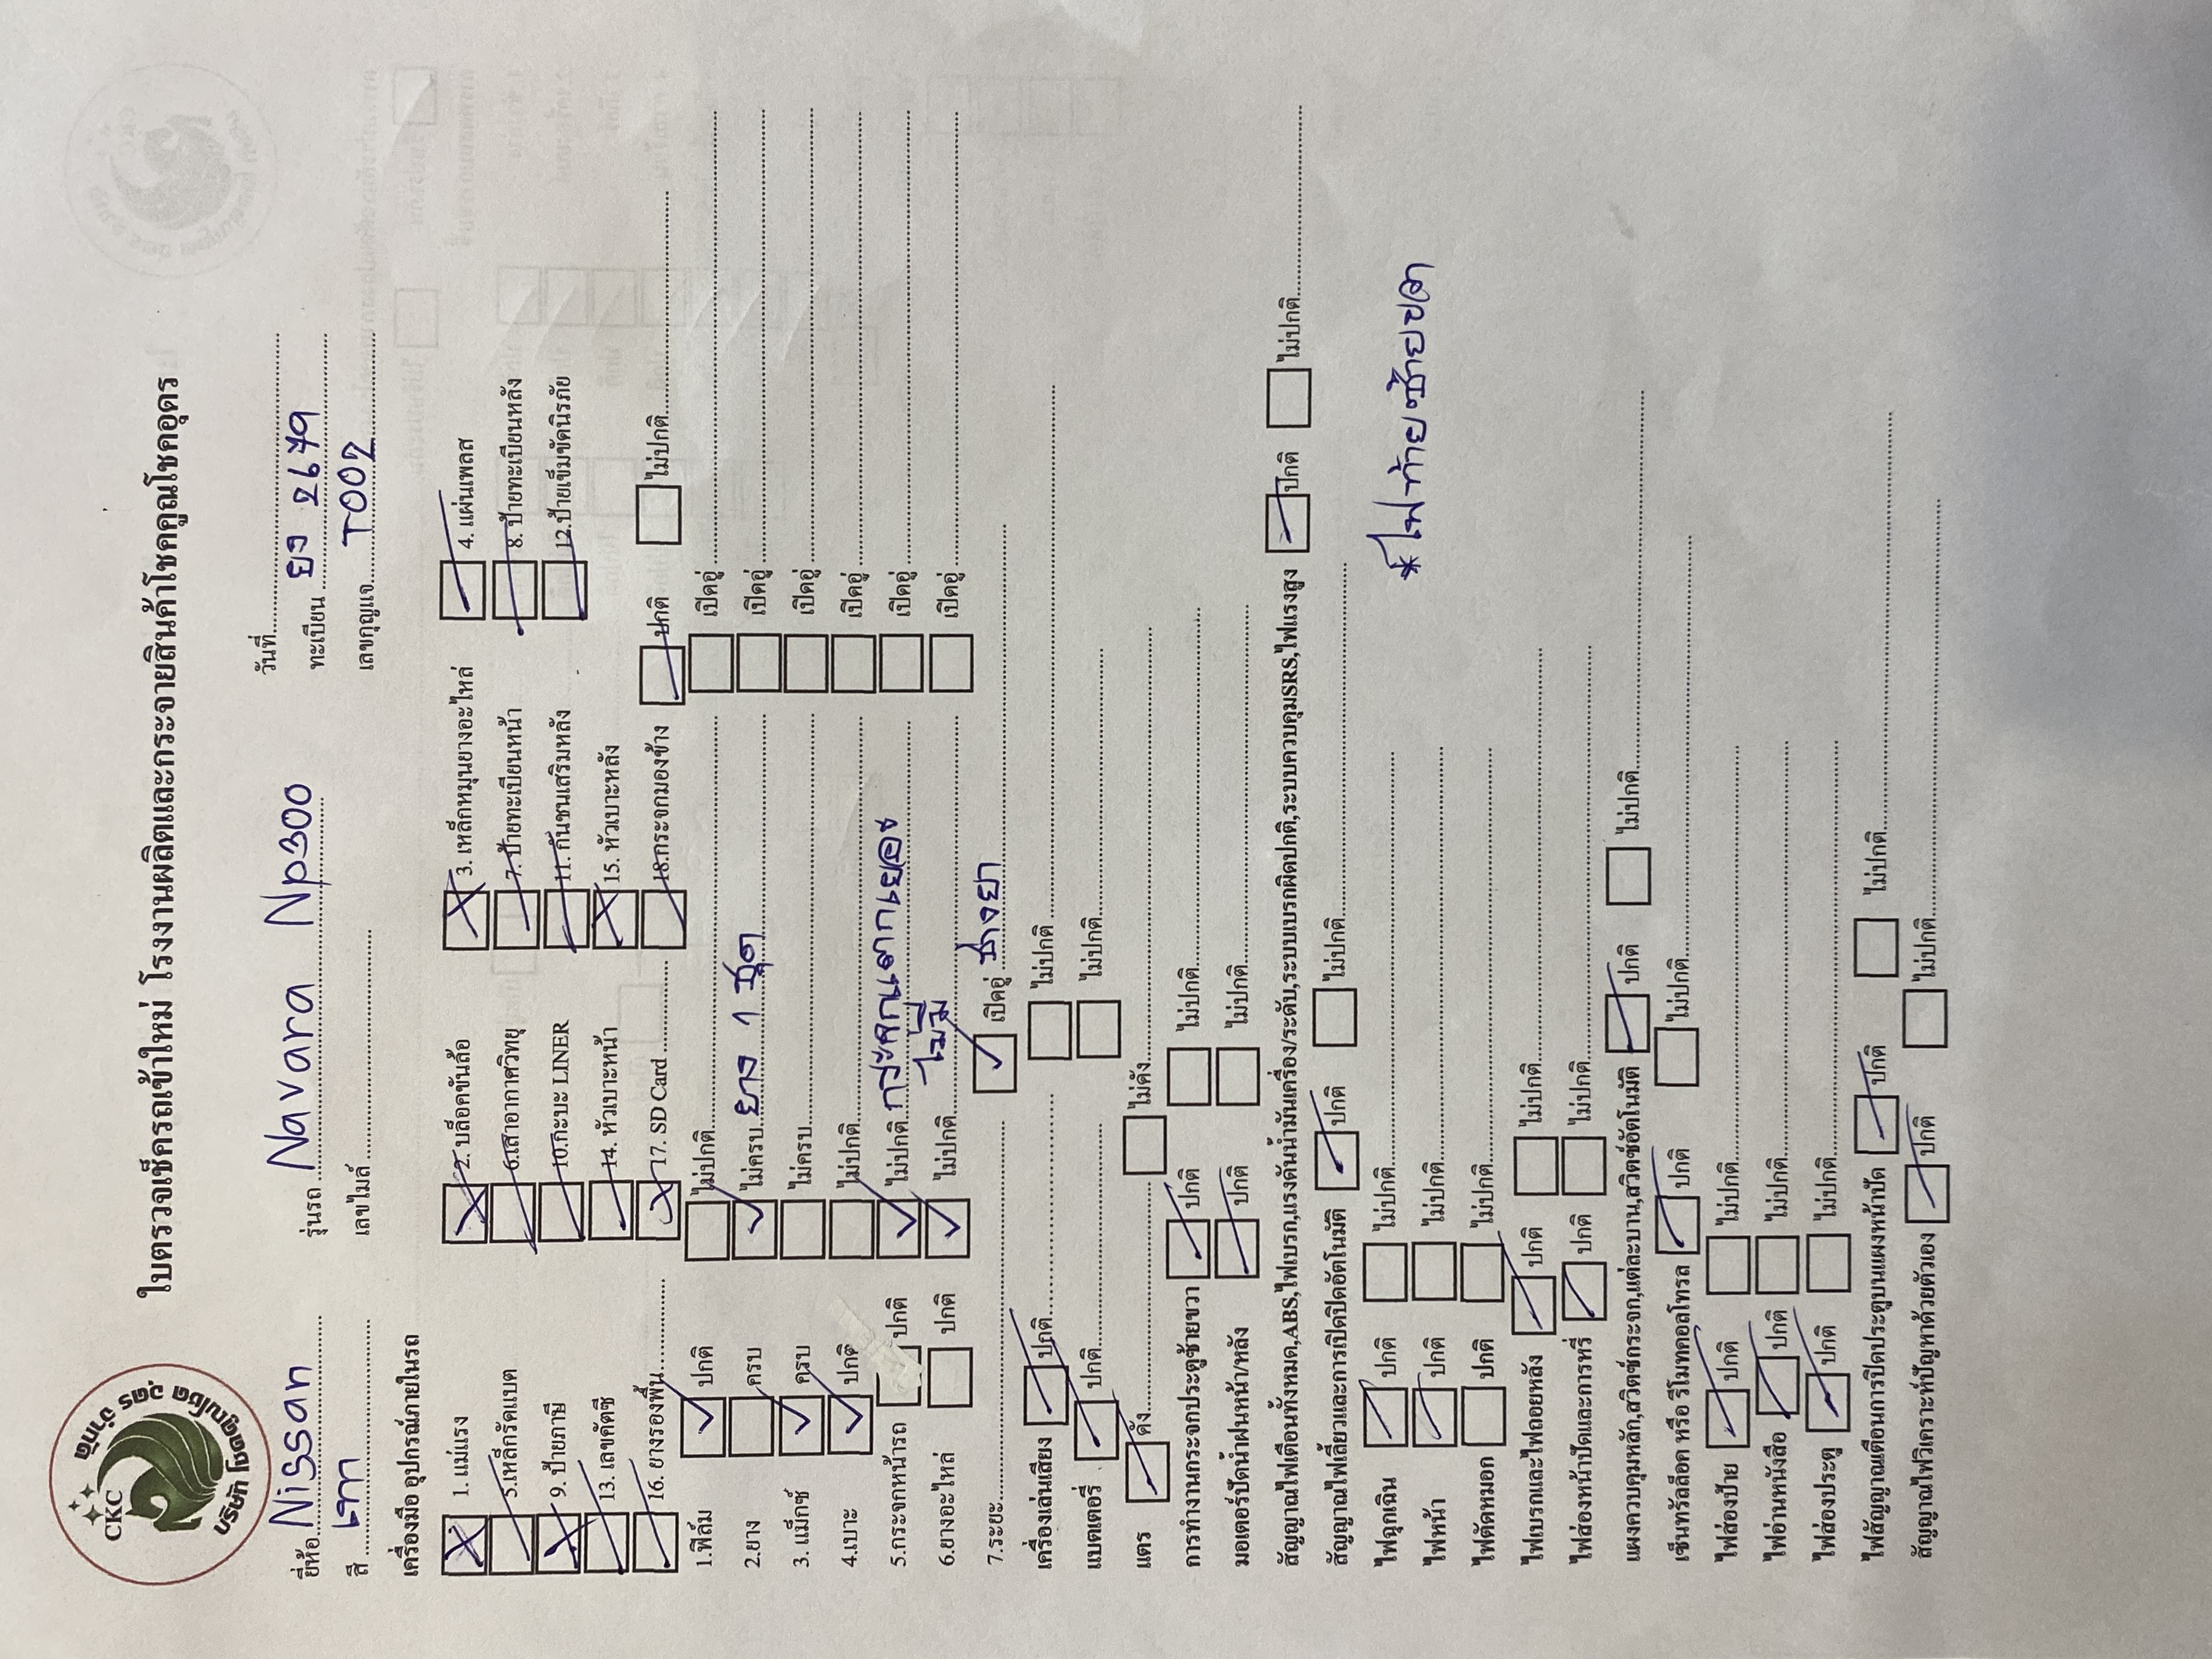 CKC
บริษัท คูณโชค อุดร จำกัด
ใบตรวจเช็ครถเข้าใหม่ โรงงานผลิตและกระจายสินค้าโชคคูณโชคอุดร
วันที่
ยี่ห้อ Nissan รุ่นรถ Navara Np300 ทะเบียน ยง 2679
สี เทา เลขไมล์ เลขกุญแจ T002
เครื่องมือ อุปกรณ์ภายในรถ
1. แม่แรง 2. บล็อคขันล้อ 3. เหล็กหมุนยางอะไหล่ 4. แผ่นเพลส
5. เหล็กรัดแบต 6. เสาอากาศวิทยุ 7. ป้ายทะเบียนหน้า 8. ป้ายทะเบียนหลัง
9. ป้ายภาษี 10. กะบะ LINER 11. กันชนเสริมหลัง 12. ป้ายเข็มขัดนิรภัย
13. เลขคัตซี 14. หัวเบาะหน้า 15. หัวเบาะหลัง
16. ยางรองพื้น 17. SD Card 18. กระจกมองข้าง ปกติ ไม่ปกติ
1. ฟิล์ม ปกติ ไม่ปกติ เปิดอู่
2. ยาง ครบ ไม่ครบ ยาง 1 ชุด เปิดอู่
3. แม็กซ์ ครบ ไม่ครบ เปิดอู่
4. เบาะ ปกติ ไม่ปกติ เปิดอู่
5. กระจกหน้ารถ ปกติ ไม่ปกติ กระจกแตกเยอะ เปิดอู่
6. ยางอะไหล่ ปกติ ไม่ปกติ ไม่มี เปิดอู่
7. ระยะ เปิดอู่
เครื่องเล่นเสียง ปกติ ไม่ปกติ
แบตเตอรี่ ปกติ ไม่ปกติ
แตร ดัง ไม่ดัง
การทำงานกระจกประตูซ้ายขวา ปกติ ไม่ปกติ
มอเตอร์ปัดน้ำฝนหน้า/หลัง ปกติ ไม่ปกติ
สัญญาณไฟเตือนทั้งหมด,ABS,ไฟเบรก,แรงดันน้ำมันเครื่อง/ระดับ,ระบบเบรกผิดปกติ,ระบบควบคุมSRS,ไฟแรงสูง ปกติ ไม่ปกติ
สัญญาณไฟเลี้ยวและการเปิดปิดอัตโนมัติ ปกติ ไม่ปกติ
ไฟฉุกเฉิน ปกติ ไม่ปกติ *ไฟท้ายซ้ายขวา
ไฟหน้า ปกติ ไม่ปกติ
ไฟตัดหมอก ปกติ ไม่ปกติ
ไฟเบรกและไฟถอยหลัง ปกติ ไม่ปกติ
ไฟส่องหน้าปัดและการหรี่ ปกติ ไม่ปกติ
แผงควบคุมหลัก,สวิตช์กระจก,แต่ละบาน,สวิตช์อัตโนมัติ ปกติ ไม่ปกติ
เซ็นทรัลล็อค หรือ รีโมทคอลโทรล ปกติ ไม่ปกติ
ไฟส่องป้าย ปกติ ไม่ปกติ
ไฟอ่านหนังสือ ปกติ ไม่ปกติ
ไฟส่องประตู ปกติ ไม่ปกติ
ไฟสัญญาณเตือนการปิดประตูบนแผงหน้าปัด ปกติ ไม่ปกติ
สัญญาณไฟวิเคราะห์ปัญหาด้วยตัวเอง ปกติ ไม่ปกติ